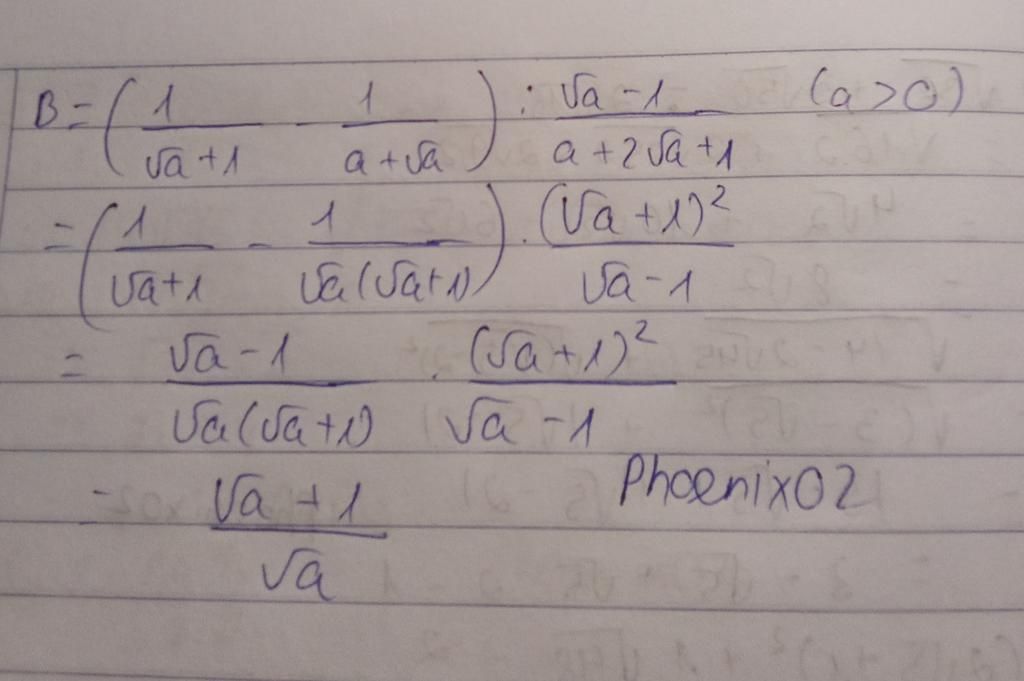 B = ( 1/(√a + 1) - 1/(a + √a) ) : (√a - 1)/(a + 2√a + 1) (a > 0)
= ( 1/(√a + 1) - 1/(√a(√a + 1)) ) . (√a + 1)²/(√a - 1)
= (√a - 1)/(√a(√a + 1)) . (√a + 1)²/(√a - 1)
= (√a + 1)/√a
Phoenix02